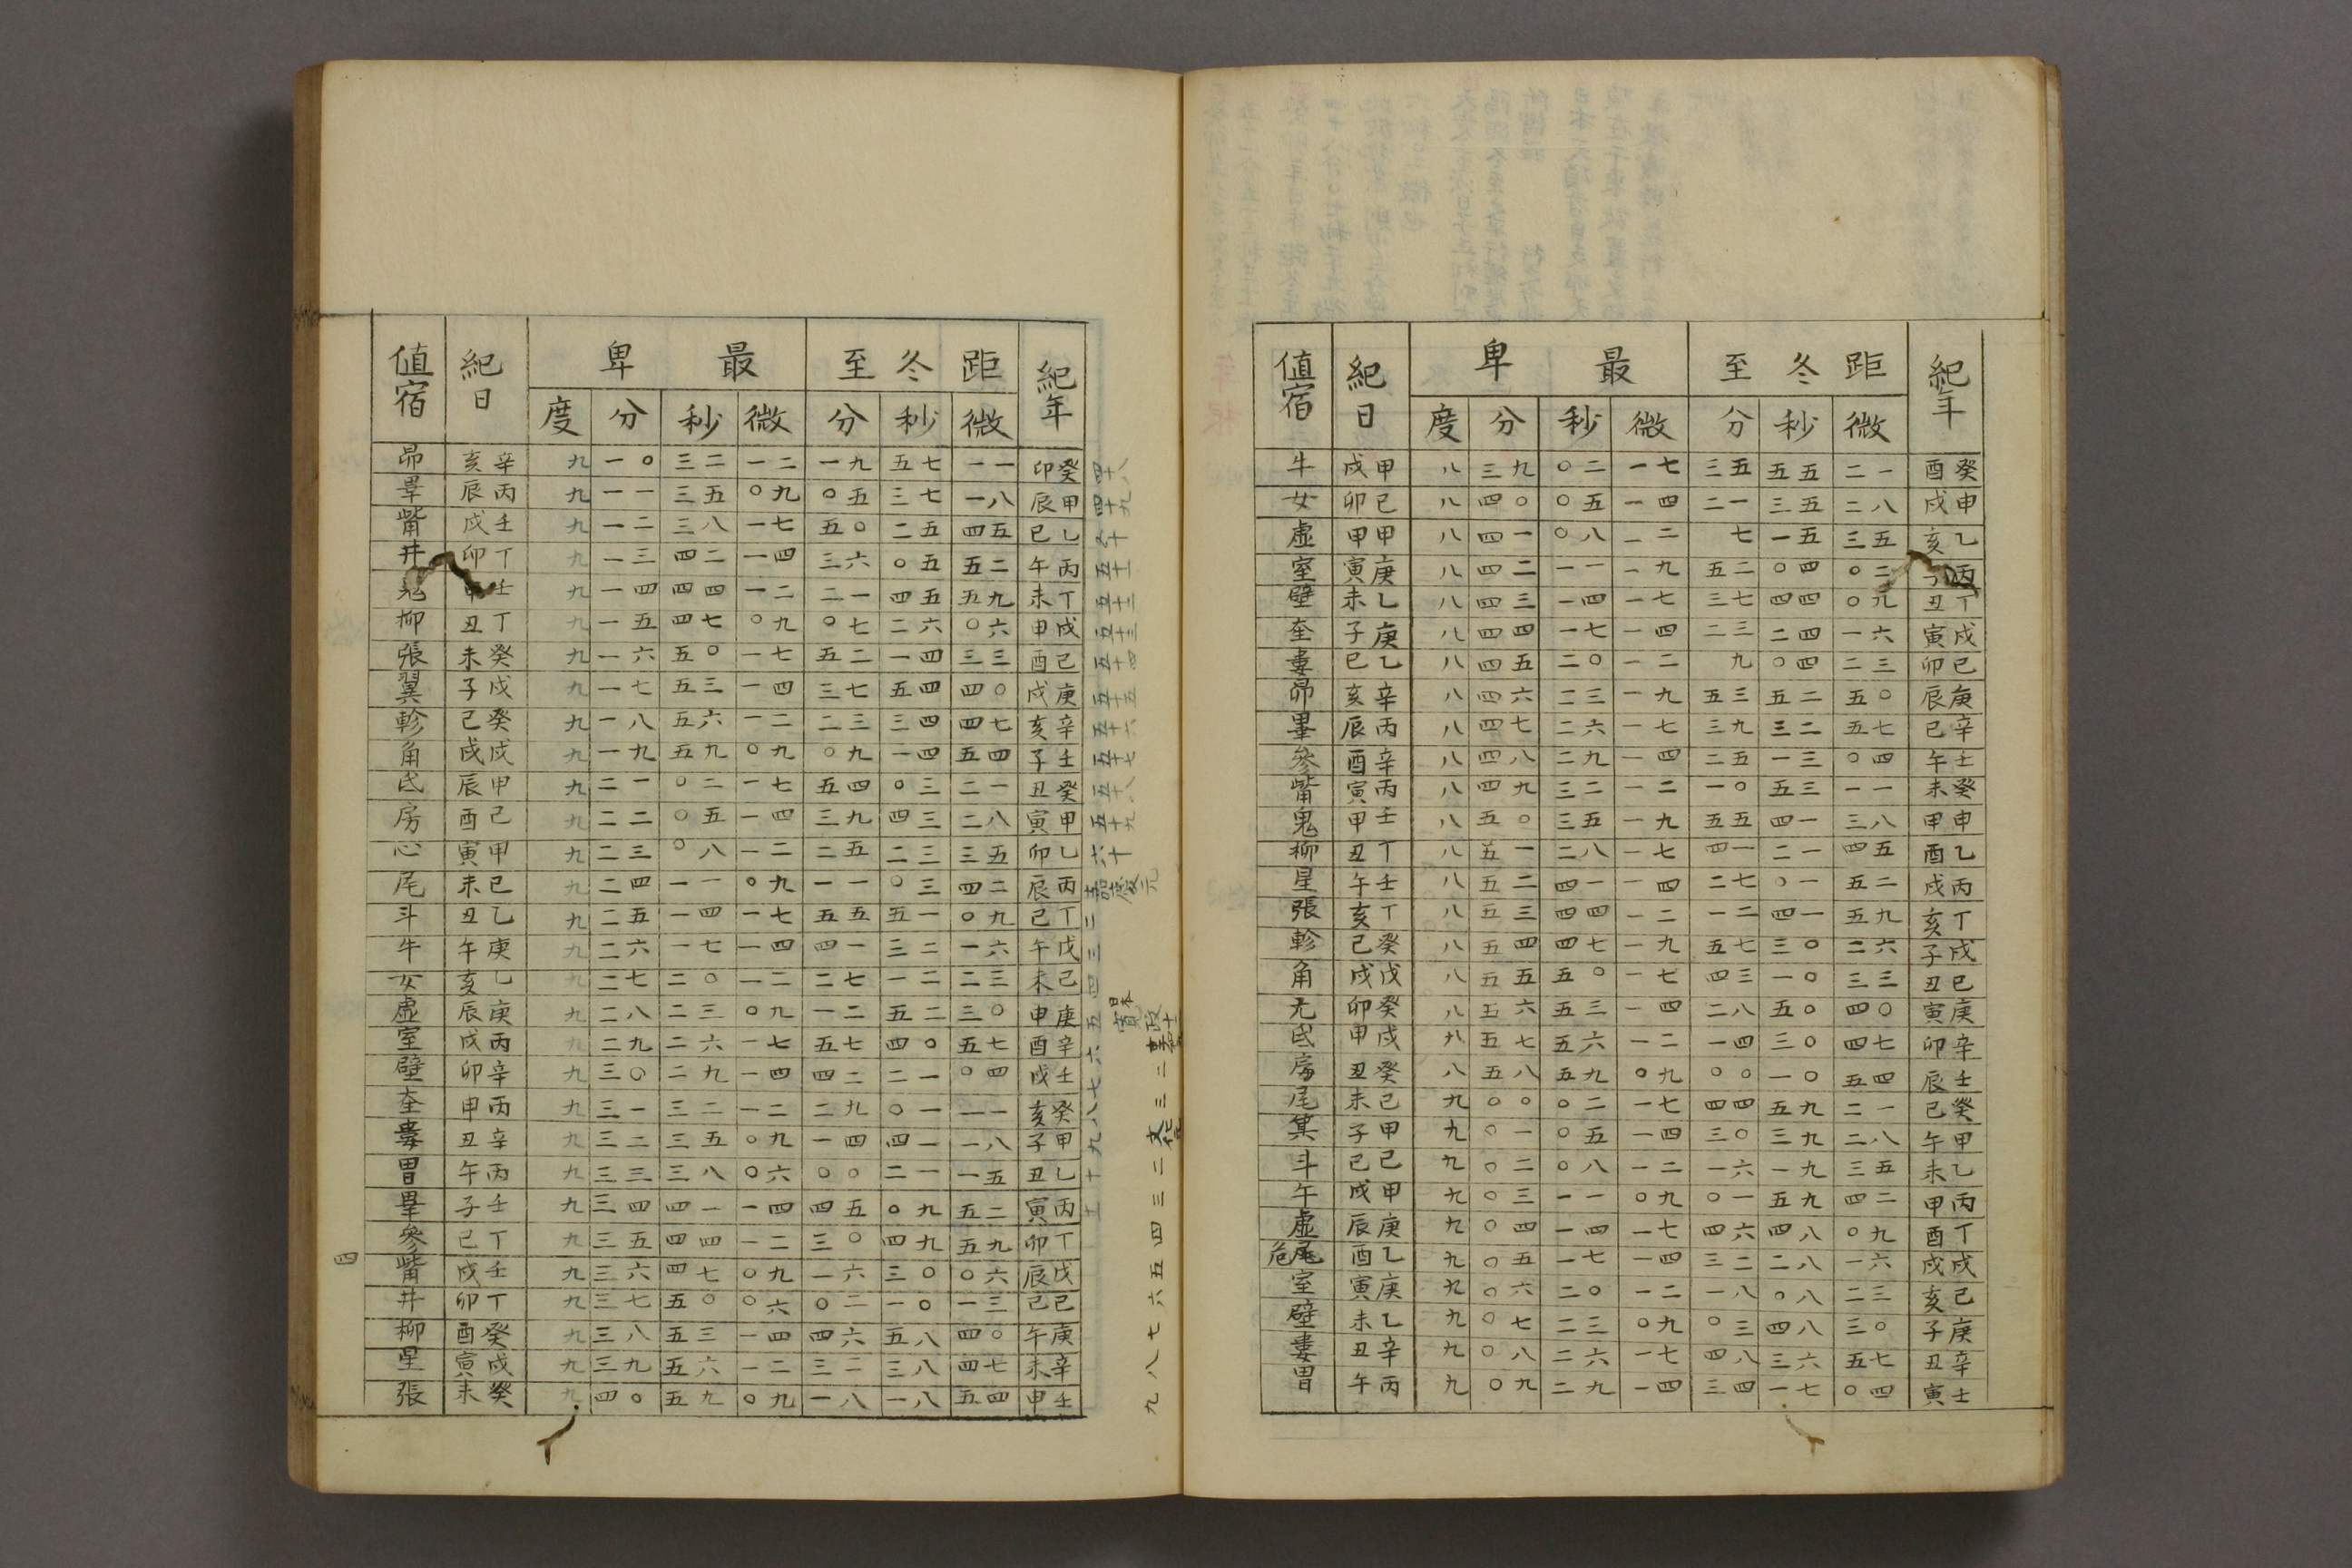 紀年 距冬至 最卑 紀日 値宿
微 秒 分 微 秒 分 度
癸酉 二一 五五 三五 一七 〇二 三九 八 甲戌 牛
甲戌 二八 三五 二一 一四 〇五 四〇 八 己卯 女
乙亥 三五 一五 七 一二 〇八 四一 八 甲申 虛
丙子 〇二 〇四 五二 一九 一一 四二 八 庚寅 室
丁丑 〇九 四四 三七 一七 一四 四三 八 乙未 壁
戊寅 一六 二四 二三 一四 一七 四四 八 庚子 奎
己卯 二三 〇四 九 一二 二〇 四五 八 乙巳 婁
庚辰 五〇 五二 五三 一九 二三 四六 八 辛亥 昴
辛巳 五七 三二 三九 一七 二六 四七 八 丙辰 畢
壬午 〇四 一三 二五 一四 二九 四八 八 辛酉 參
癸未 一一 五三 一〇 一二 三二 四九 八 丙寅 觜
甲申 三八 四一 五五 一九 三五 五〇 八 壬申 鬼
乙酉 四五 二一 四一 一七 二八 五一 八 丁丑 柳
丙戌 五二 〇一 二七 一四 四一 五二 八 壬午 星
丁亥 五九 四一 一二 一二 四四 五三 八 丁亥 張
戊子 二六 三〇 五七 一九 四七 五四 八 癸巳 軫
己丑 三三 一〇 四三 一七 五〇 五五 八 戊戌 角
庚寅 四〇 五〇 二八 一四 五三 五六 八 癸卯 亢
辛卯 四七 三〇 一四 一二 五六 五七 八 戊申 氐
壬辰 五四 一〇 〇〇 〇九 五九 五八 八 癸丑 房
癸巳 二一 五九 四四 一七 〇二 〇〇 九 己未 尾
甲午 二八 三九 三〇 一四 〇五 〇一 九 甲子 箕
乙未 三五 一九 一六 一二 〇八 〇二 九 己巳 斗
丙申 四二 五九 〇一 〇九 一一 〇三 九 甲戌 牛
丁酉 〇九 四八 四六 一七 一四 〇四 九 庚辰 虛
戊戌 一六 二八 三二 一四 一七 〇五 九 乙酉 危
己亥 二三 〇八 一八 一二 二〇 〇六 九 庚寅 室
庚子 三〇 四八 〇三 〇九 二三 〇七 九 乙未 壁
辛丑 五七 三六 四八 一七 二六 〇八 九 辛丑 婁
壬寅 〇四 一七 三四 一四 二九 〇九 九 丙午 胃
日本寛政十二
二 三 文化元 二 三 四 五 六 七 八 九
四十八 四十九 五十 五十一 五十二 五十三 五十四 五十五 五十六 五十七 五十八 五十九 六十 嘉慶元 二 三 四 五 六 七 八 九 十 十一
紀年 距冬至 最卑 紀日 値宿
微 秒 分 微 秒 分 度
癸卯 一一 五七 一九 一二 三二 一〇 九 辛亥 昴
甲辰 一八 三七 〇五 〇九 三五 一一 九 丙辰 畢
乙巳 四五 二五 五〇 一七 三八 一二 九 壬戌 觜
丙午 五二 〇五 三六 一四 四二 一三 九 丁卯 井
丁未 五九 四五 二一 一二 四四 一四 九 壬申 鬼
戊申 〇六 二六 〇七 〇九 四七 一五 九 丁丑 柳
己酉 三三 一四 五二 一七 五〇 一六 九 癸未 張
庚戌 四〇 五四 三七 一四 五三 一七 九 戊子 翼
辛亥 四七 三四 二三 一二 五六 一八 九 癸巳 軫
壬子 五四 一四 〇九 〇九 五九 一九 九 戊戌 角
癸丑 二一 〇三 五四 一七 〇二 二一 九 甲辰 氐
甲寅 二八 四三 三九 一四 〇五 二二 九 己酉 房
乙卯 三五 二三 二五 一二 〇八 二三 九 甲寅 心
丙辰 四二 〇三 一一 〇九 一一 二四 九 己未 尾
丁巳 〇九 五一 五五 一七 一四 二五 九 乙丑 斗
戊午 一六 三二 四一 一四 一七 二六 九 庚午 牛
己未 二三 一二 二七 一二 二〇 二七 九 乙亥 女
庚申 三〇 五二 一二 〇九 二三 二八 九 庚辰 虛
辛酉 五七 四〇 五七 一七 二六 二九 九 丙戌 室
壬戌 〇四 二一 四二 一四 二九 三〇 九 辛卯 壁
癸亥 一一 〇一 二九 一二 三二 三一 九 丙申 奎
甲子 一八 四一 一四 〇九 三五 三二 九 辛丑 婁
乙丑 一五 二一 〇〇 〇六 三八 三三 九 丙午 胃
丙寅 五二 〇九 四五 一四 四一 三四 九 壬子 畢
丁卯 五九 四九 三〇 一二 四四 三五 九 丁巳 參
戊辰 〇六 三〇 一六 〇九 四七 三六 九 壬戌 觜
己巳 一三 一〇 〇二 〇六 五〇 三七 九 丁卯 井
庚午 四〇 五八 四六 一四 五三 三八 九 癸酉 柳
辛未 四七 三八 三二 一二 五六 三九 九 戊寅 星
壬申 五四 一八 一八 〇九 五九 四〇 九 癸未 張
四